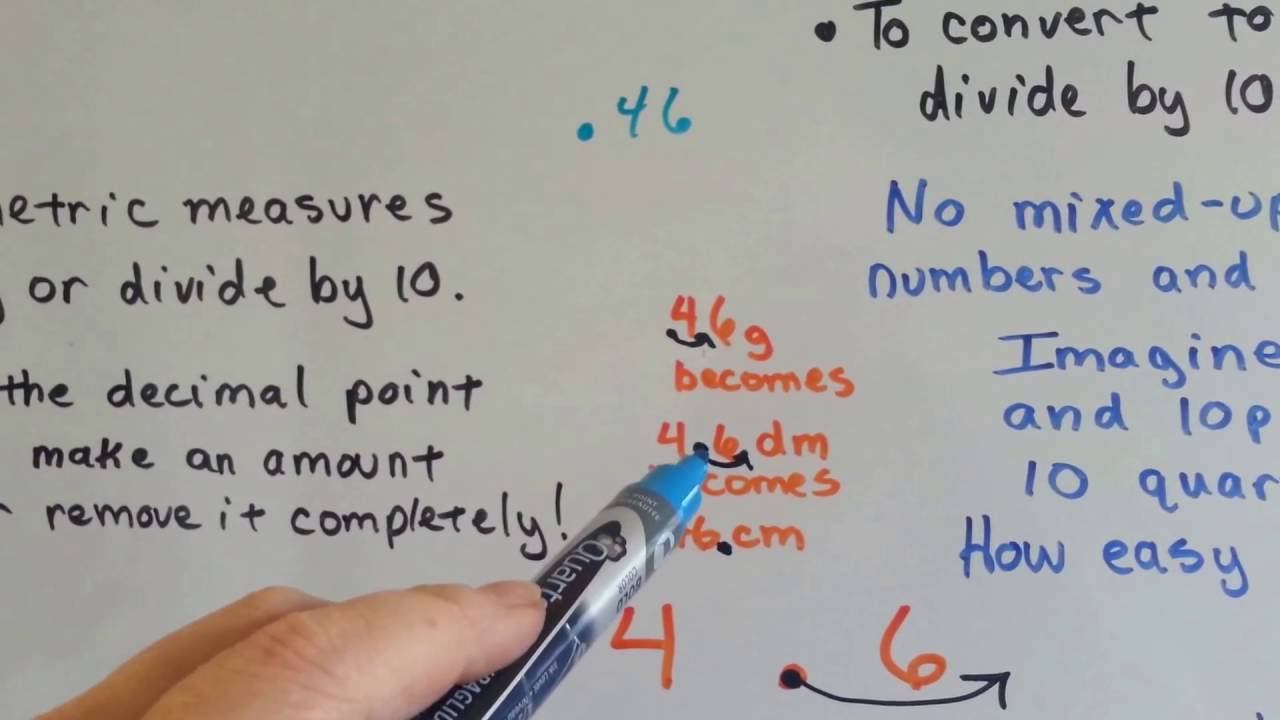 .46
etric measures
or divide by 10.
the decimal point
make an amount
remove it completely!
46g
becomes
4.6 dm
comes
6.cm
4 . 6
• To convert to
divide by 10
No mixed-up
numbers and
Imagine
and 10p
10 quar
How easy
Quart